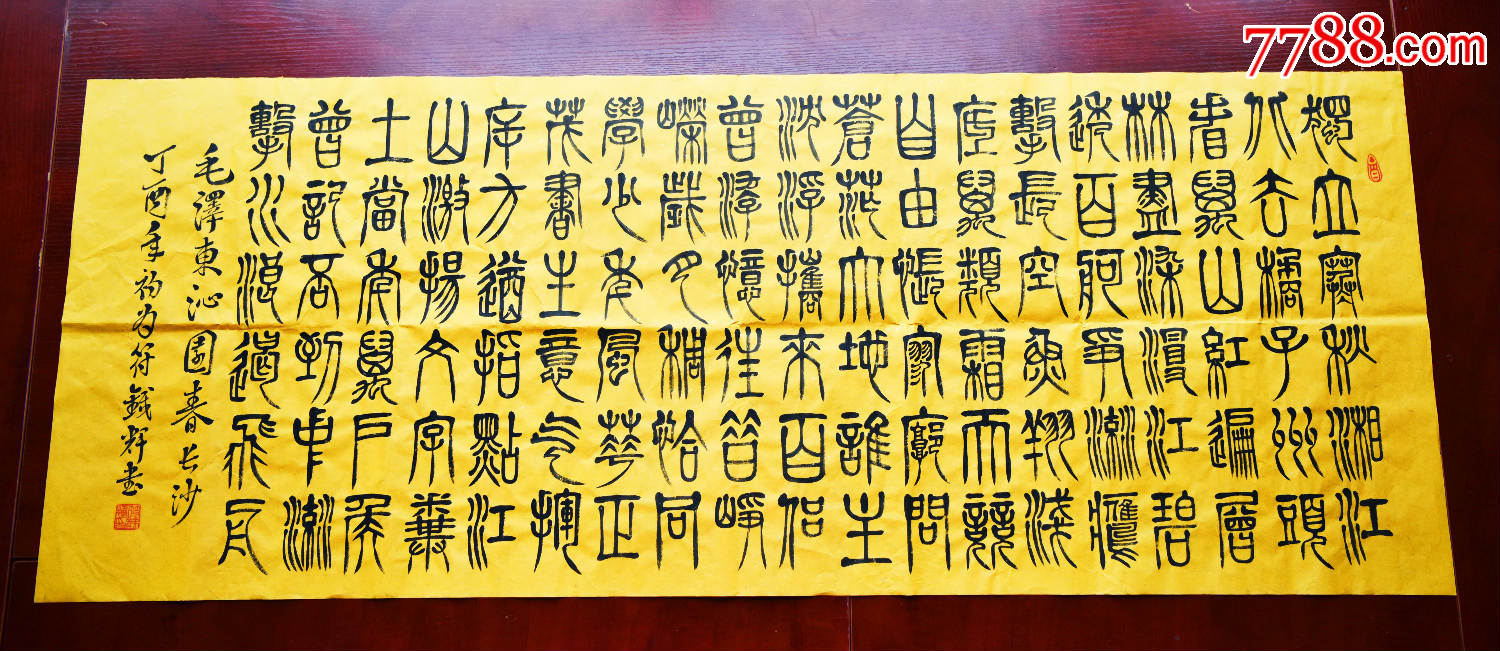 7788.com
獨立寒秋湘江
北去橘子州頭
看萬山紅遍層
林盡染漫江碧
透百舸爭流鷹
擊長空魚翔淺
底萬類霜天競
自由悵寥廓問
蒼茫大地誰主
沈浮攜來百侶
曾游憶往昔崢
嶸歲月稠恰同
學少年風華正
茂書生意氣揮
斥方遒指點江
山激揚文字糞
土當年萬戶侯
曾記否到中流
擊水浪遏飛舟
毛澤東沁園春長沙
丁酉年初夏符鐵輝書